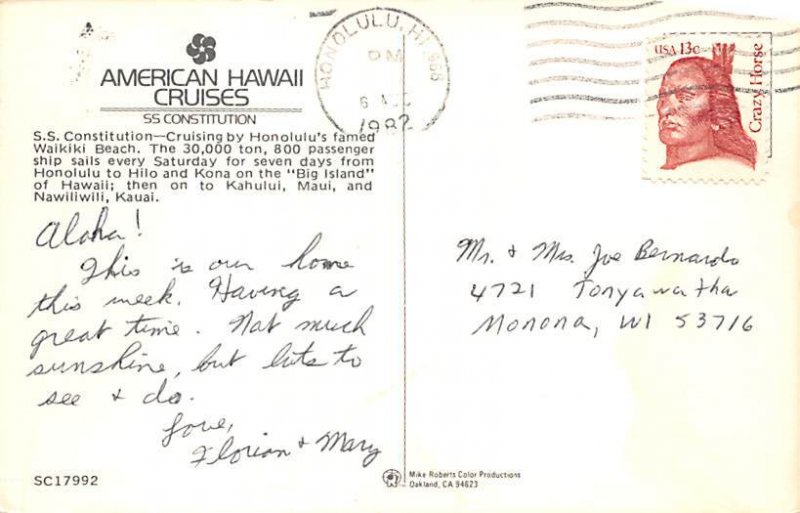 AMERICAN HAWAII
CRUISES
SS CONSTITUTION
S.S. Constitution—Cruising by Honolulu's famed
Waikiki Beach. The 30,000 ton, 800 passenger
ship sails every Saturday for seven days from
Honolulu to Hilo and Kona on the "Big Island"
of Hawaii; then on to Kahului, Maui, and
Nawiliwili, Kauai.
Aloha!
This is our home
this week. Having a
great time. Not much
sunshine, but lots to
see + do.
Love,
Florian + Mary
SC17992
HONOLULU, HI 968
PM
6
1982
USA 13c
Crazy Horse
Mr. + Mrs. Joe Bernardo
4721 Tonyawatha
Monona, WI 53716
Mike Roberts Color Productions
Oakland, CA 94623